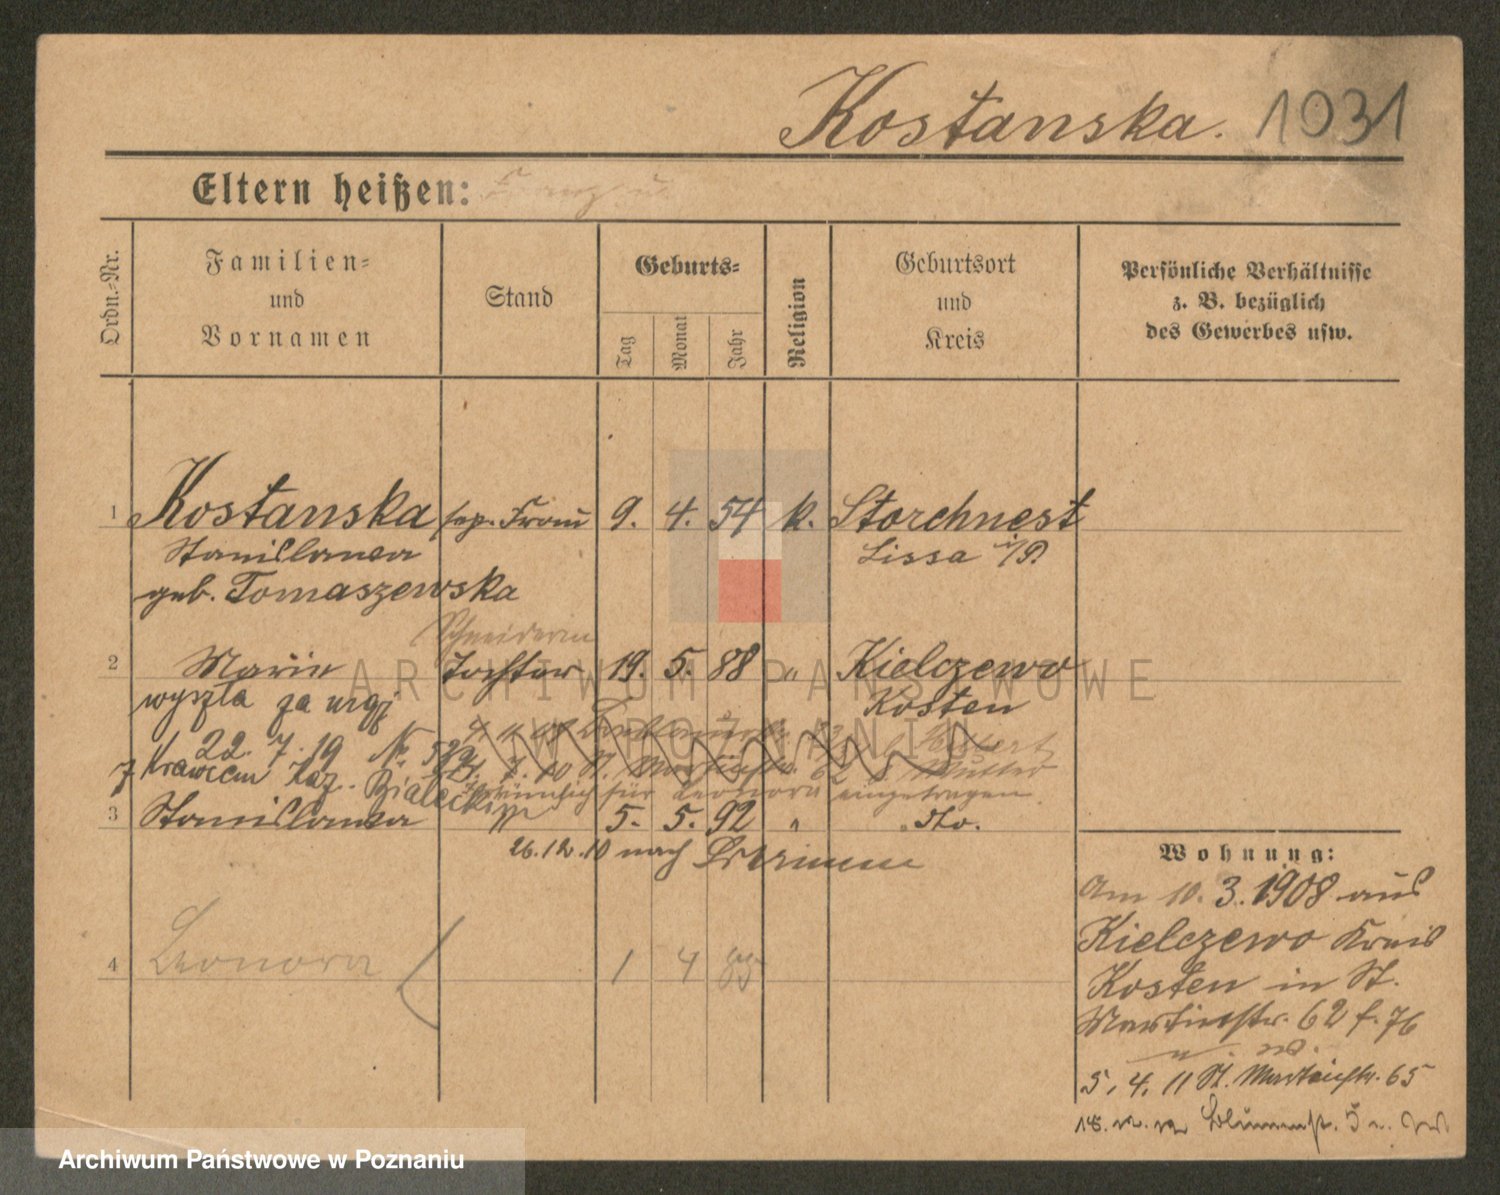 Kostanska. 1031
Eltern heißen:
Ordn.-Nr.
Familien-
und
Vornamen
Stand
Geburts-
Tag
Monat
Jahr
Religion
Geburtsort
und
Kreis
Persönliche Verhältnisse
z. B. bezüglich
des Gewerbes usw.
1 Kostanska sep. Frau 9. 4. 54 k. Storchnest
Stanislawa Lissa i/P.
geb. Tomaszewska
Schneiderin
2 Marie Tochter 19. 5. 88 " Kielczewo
wyszła za mąż Kosten
22. 7. 19 No
z Krawcem Kaz. Białeckim
Mutter
für Leonora eingetragen.
3 Stanislawa 5. 5. 92 " dto.
26.12.10 nach
4 Leonora 1 4
Wohnung:
Am 10. 3. 1908 aus
Kielczewo Kreis
Kosten in St.
Martinstr. 62 f. 76
5. 4. 11 St. Martinstr. 65
ARCHIWUM PAŃSTWOWE
W POZNANIU
Archiwum Państwowe w Poznaniu